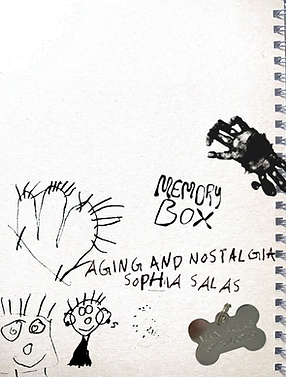 MEMORY
BOX
AGING AND NOSTALGIA
SOPHIA SALAS